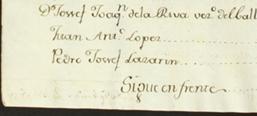 Dⁿ Josseſ Joaqⁿ de la Riva vezº del Vall
Juan Antº Lopez
Pedro Josseſ Lazarin
Sigue en frente